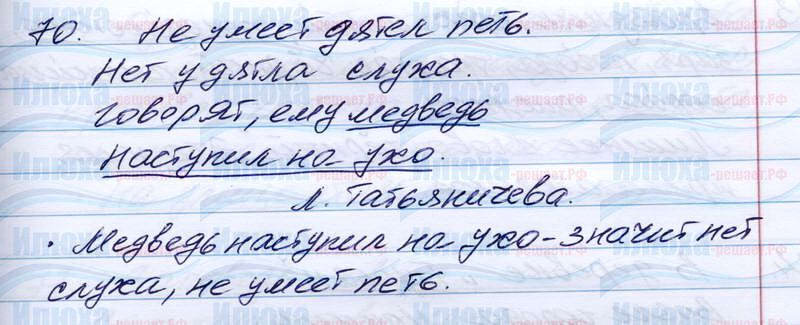 70. Не умеет дятел петь.
Нет у дятла слуха.
Говорят, ему медведь
Наступил на ухо.
Л. Татьяничева.
· Медведь наступил на ухо - значит нет
слуха, не умеет петь.